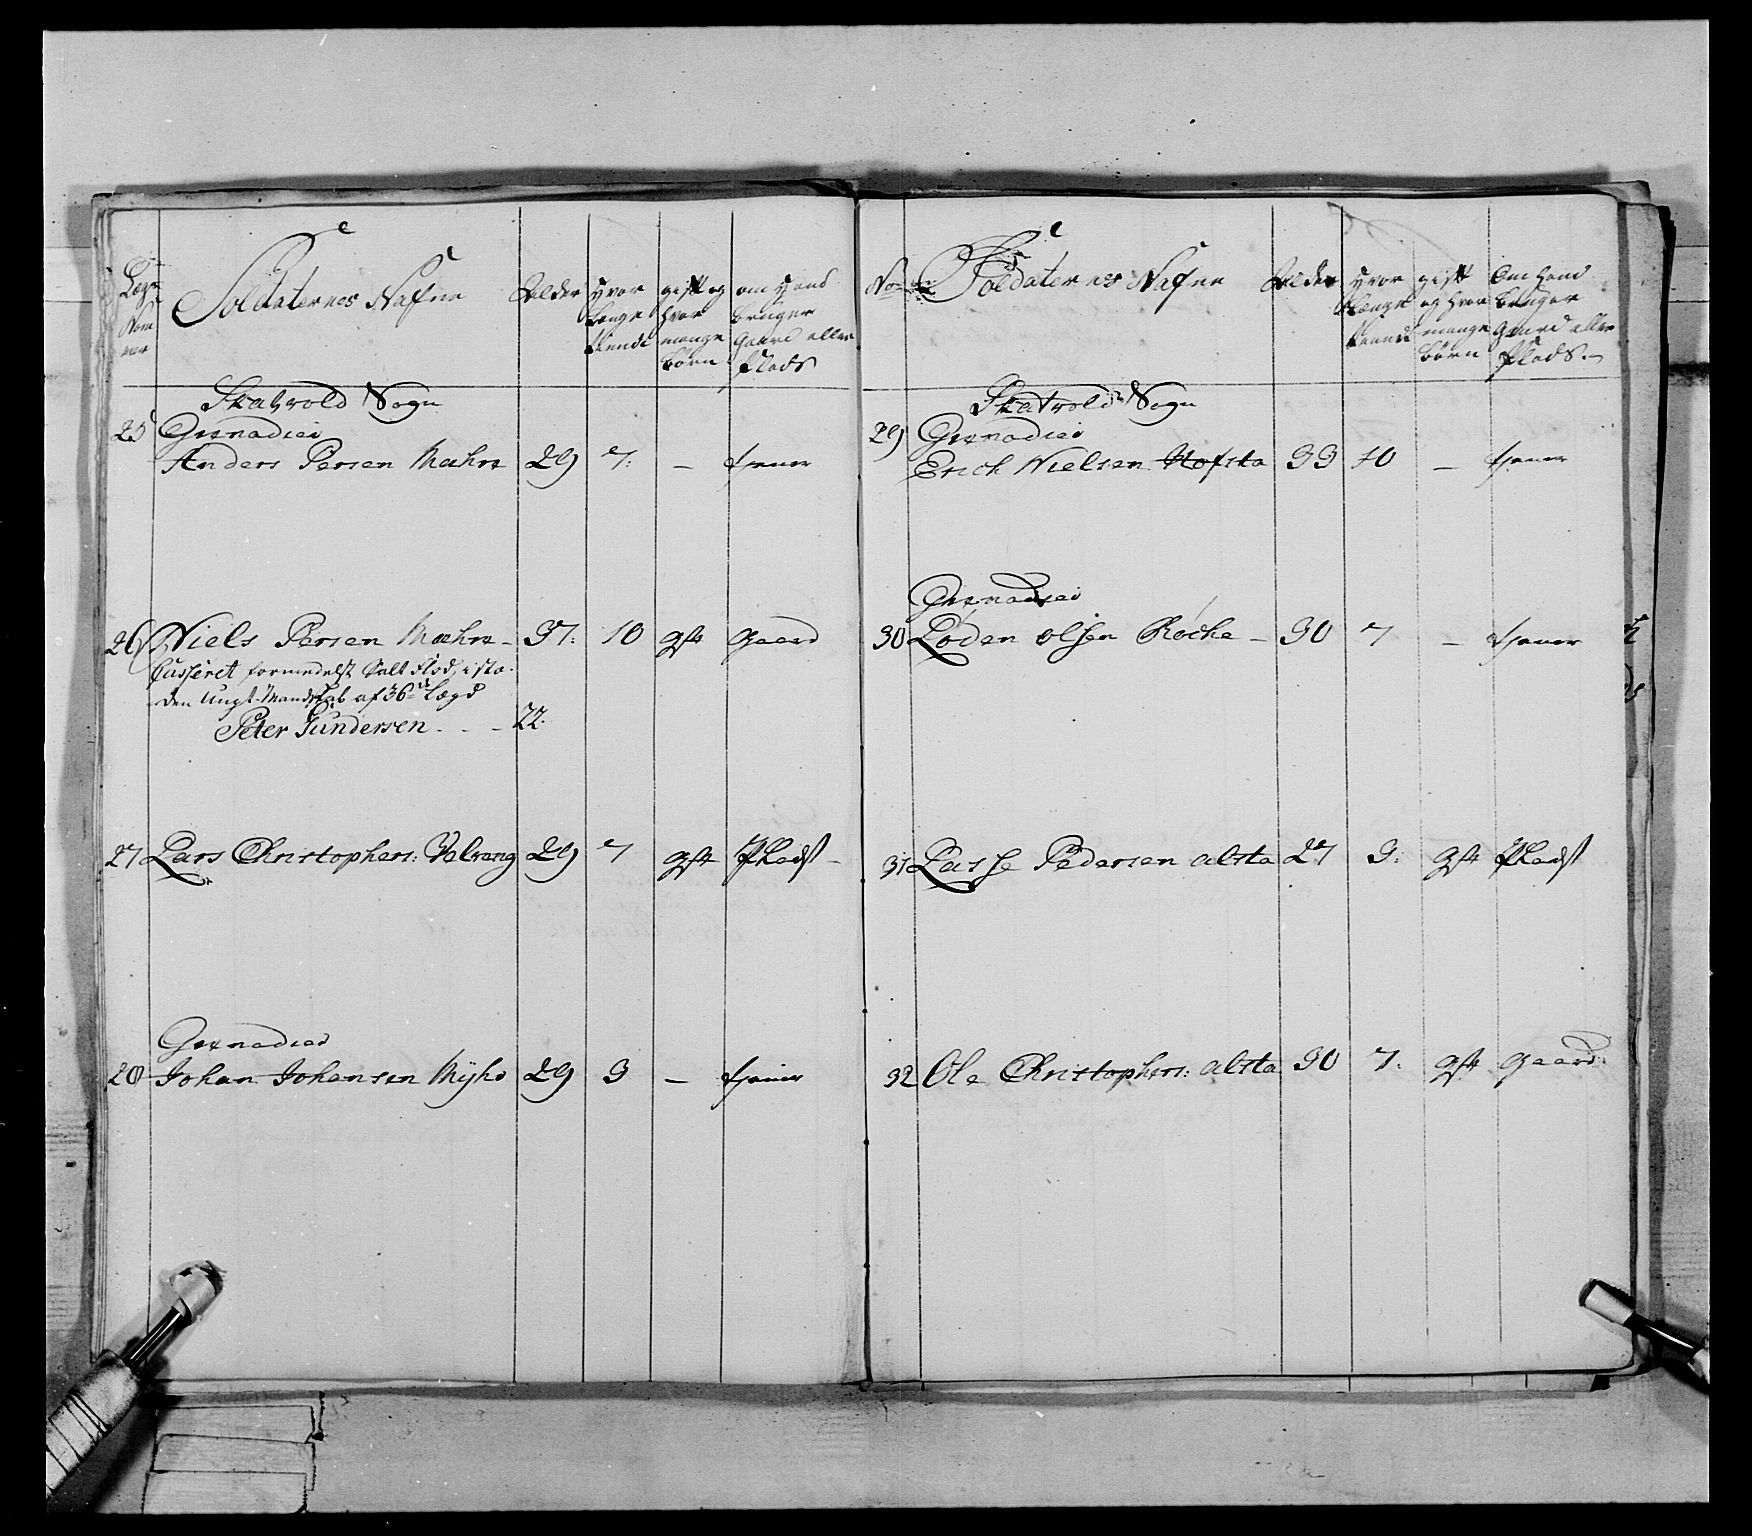 Lægs Nom mer
Soldaternes Nafne
Alder
hvor længe tiendt
gift og hvor mange børn
om hand bruger gaard eller Plads
Skatvold Sogn
25 Grenadier
Anders Persen Mæhre 29 7: – tjener
26 Niels Persen Mæhre – 37: 10 gift gaard
Casseret formedelst Salt Flod, i stæ-
den Ungt Mandskab af 36de Lægd
Peter Gundersen . . – 22
27 Lars Christophers: Velvang 29 7 gift Pladst –
Grenadier
28 Johan Johansen Myhr 29 9 – tjener
No
Soldaternes Nafne
Alder
hvor længe tiendt
gift og hvor mange børn
Om hand bruger gaard eller Plads –
Skatvold Sogn
29 Grenadier
Erich Nielsen Hofsta 33 10 – tjener
Grenadier
30 Loden Olsen Røcke – 30 7 – tjener
31 Lasse Pedersen alsta 27 9: gift Pladst
32 Ole Christophers: alsta 30 7: gift gaard